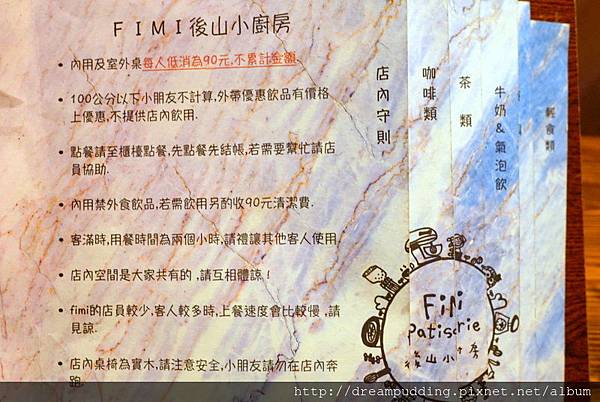 ＦＩＭＩ後山小廚房
• 內用及室外桌每人低消為90元,不累計金額.
• 100公分以下小朋友不計算,外帶優惠飲品有價格
上優惠,不提供店內飲用.
• 點餐請至櫃檯點餐,先點餐先結帳,若需要幫忙請店
員協助.
• 內用禁外食飲品,若需飲用另酌收90元清潔費.
• 客滿時,用餐時間為兩個小時,請禮讓其他客人使用.
• 店內空間是大家共有的,請互相體諒！
• fimi的店員較少,客人較多時,上餐速度會比較慢,請
見諒.
• 店內桌椅為實木,請注意安全,小朋友請勿在店內奔
跑.
店內守則
咖啡類
茶類
牛奶&氣泡飲
輕食類
FiMi
Patisserie
後山小廚房
http://dreampudding.pixnet.net/album